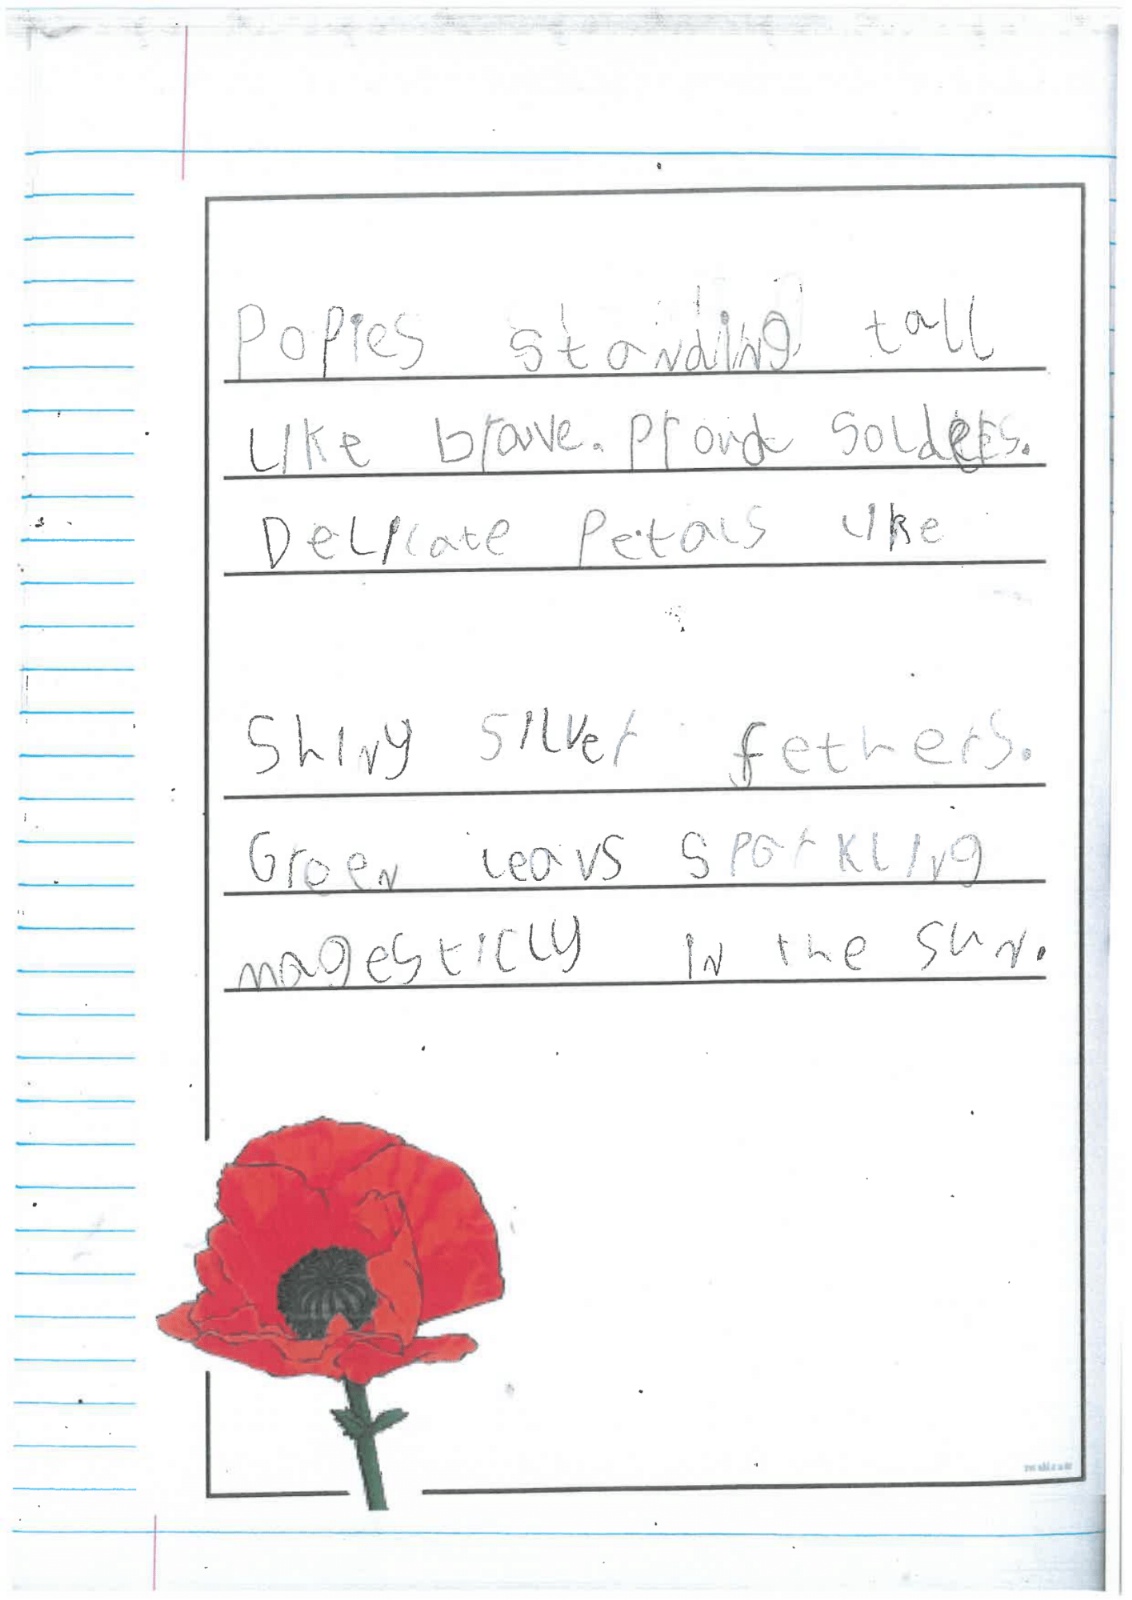 Popies standing tall
like brave. proud solders.
Delicate petals like
Shiny silver fethers.
Green leavs sparkling
magesticly in the sun.